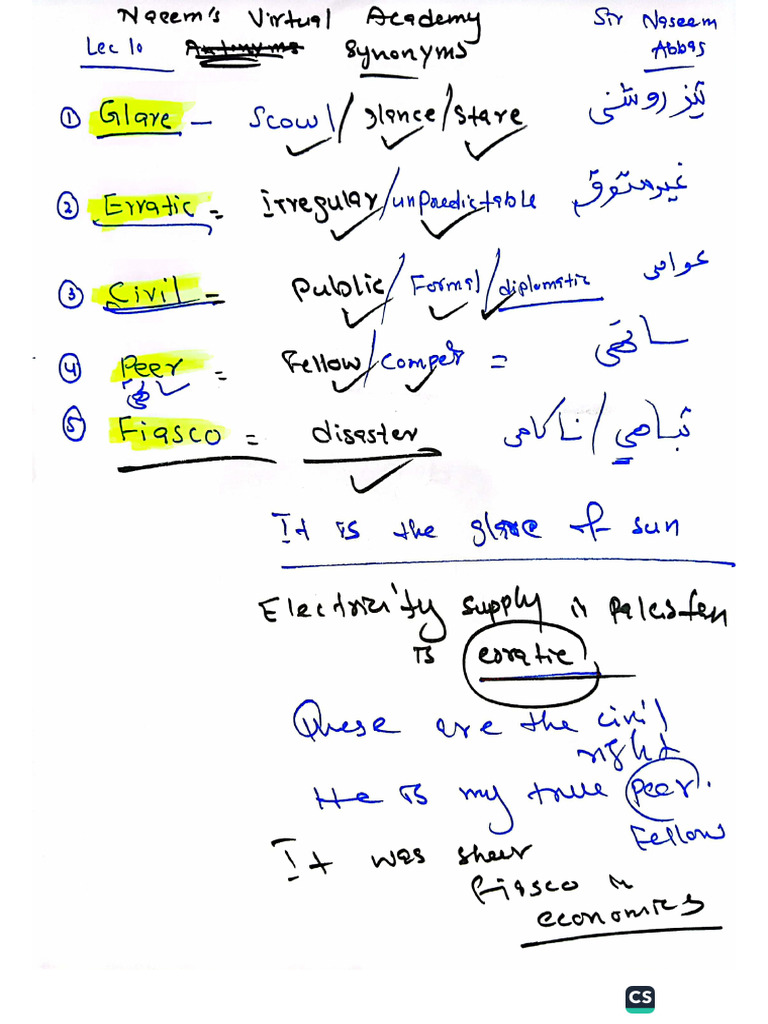 Naeem's Virtual Academy Sir Naseem Abbas
Lec 10 Antonyms Synonyms
① Glare - Scowl/glance/stare تیز روشنی
② Erratic = irregular/unpredictable غیر متوقع
③ Civil = Public/Formal/diplomatic عوامی
④ Peer = Fellow/Compeer = ساتھی
ساتھی
⑤ Fiasco = disaster تباھی/ناکامی
It is the glare of sun
Electricity supply in Pakistan
is erratic
These are the civil
right
He is my true peer.
Fellow
It was sheer
fiasco in
economics
CS